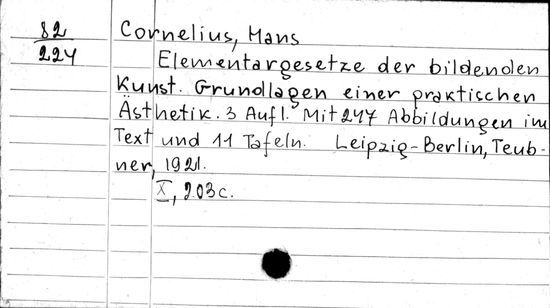 82
224
Cornelius, Hans
Elementargesetze der bildenden
Kunst. Grundlagen einer praktischen
Ästhetik. 3 Aufl. Mit 247 Abbildungen im
Text und 11 Tafeln. Leipzig-Berlin, Teub-
ner, 1921.
X, 203 c.